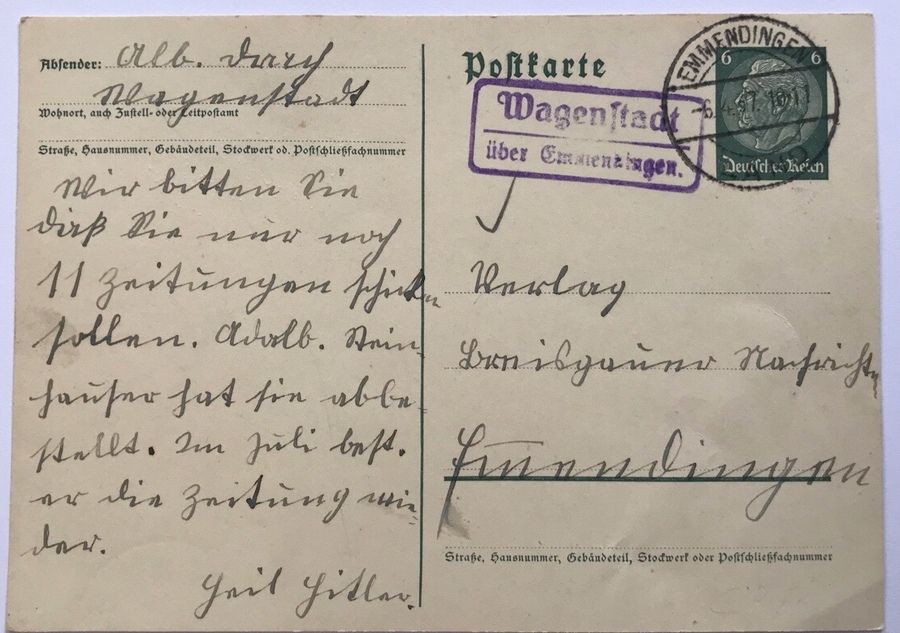 Absender: Alb. Durch
Wagenstadt
Wohnort, auch Zustell- oder Leitpostamt
Straße, Hausnummer, Gebäudeteil, Stockwerk od. Postschließfachnummer
Wir bitten Sie
daß Sie nur noch
11 Zeitungen schicken
sollen. Adalb. Stein-
hauser hat sie abbe-
stellt. Im Juli best.
er die Zeitung wie-
der.
Heil Hitler.
Postkarte
Wagenstadt
über Emmendingen.
EMMENDINGEN
6 6
Deutsches Reich
Verlag
Breisgauer Nachrichten
Emmendingen
Straße, Hausnummer, Gebäudeteil, Stockwerk oder Postschließfachnummer